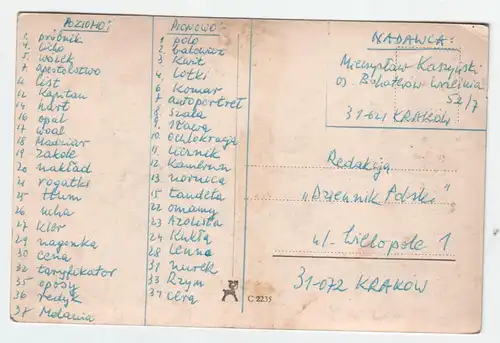 POZIOMO:
1. próbnik
4. licho
5. worek
7. apostolstwo
11 list
12 Kapitan
14 hart
16 opal
17 woal
18 Madziar
19 zakole
20 nakład
21 rogatki
25 tłum
26 ucha
27 Kier
29 nagonka
30 cena
32 taryfikator
35 eposy
36 redyk
37 Melania
PIONOWO:
1. polo
2. bałowiec
3. Kwit
4. Lotki
6 Komar
7 autoportret
8 szala
9 Iława
10 ochlokracja
11 licznik
12 Kambium
13 nornica
15 tandeta
22 omamy
23 Azolista
24 Kukła
28 Lenna
31 nurek
33 Rzym
34 cera
NADAWCA:
Mieczysław Kaszyński
os. Bohaterów Września
52/7
31-621 KRAKÓW
Redakcja
"Dziennik Polski"
ul. Wielopole 1
31-072 KRAKÓW
C 2235